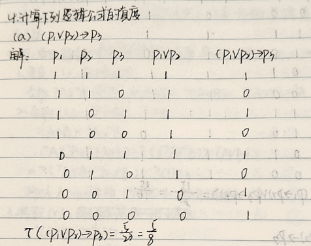 4.计算下列逻辑公式的真度
(a) (p₁∨p₂)→p₃
解: p₁ p₂ p₃ p₁∨p₂ (p₁∨p₂)→p₃
1 1 1 1 1
1 1 0 1 0
1 0 1 1 1
1 0 0 1 0
0 1 1 1 1
0 1 0 1 0
0 0 1 0 1
0 0 0 0 1
τ((p₁∨p₂)→p₃)=5/2³=5/8